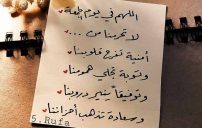 اللهم في يوم جمعة
لا تحرمنا من ...
أمنية تفرح قلوبنا
وتوبة تجلي همومنا
وتوفيقاً ينير دروبنا
وسعادة تذهب أحزاننا
S.Rufa